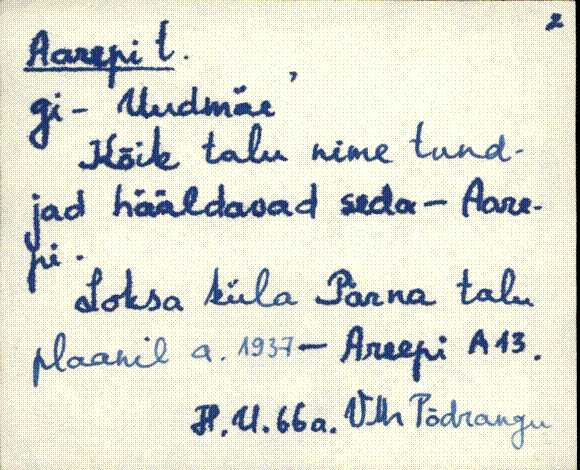 2
Aarepi t.
gi- Uudmäe
Kõik talu nime tund-
jad hääldavad seda - Aare-
pi.
Loksa küla Pärna talu
plaanil a. 1937 - Areepi A 13.
H. U. 66a. VMr Põdrangu